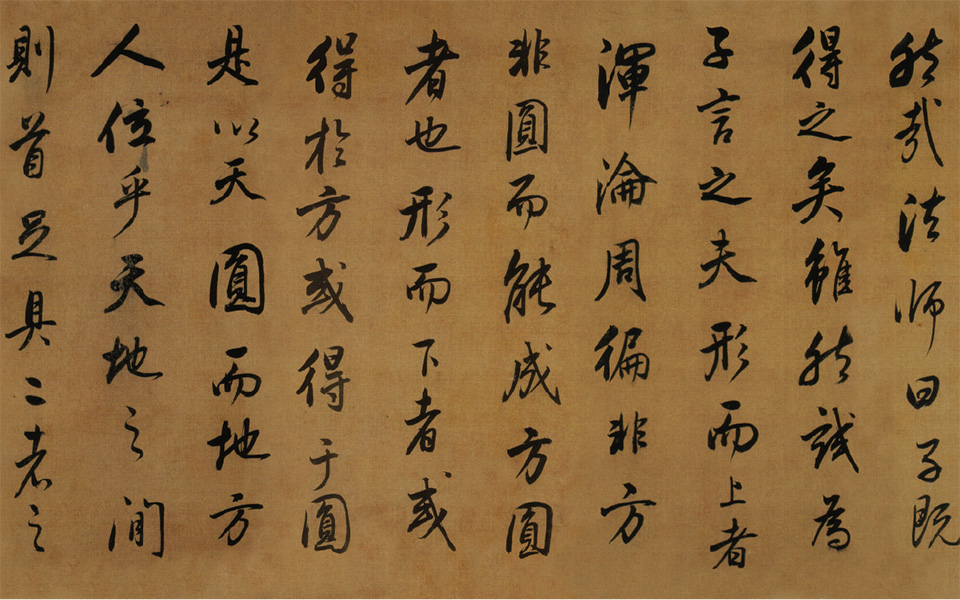 然哉法师曰子既
得之矣雖然試為
子言之夫形而上者
渾淪周徧非方
非圓而能成方圓
者也形而下者或
得於方或得于圓
是以天圓而地方
人位乎天地之間
則首足具二者之